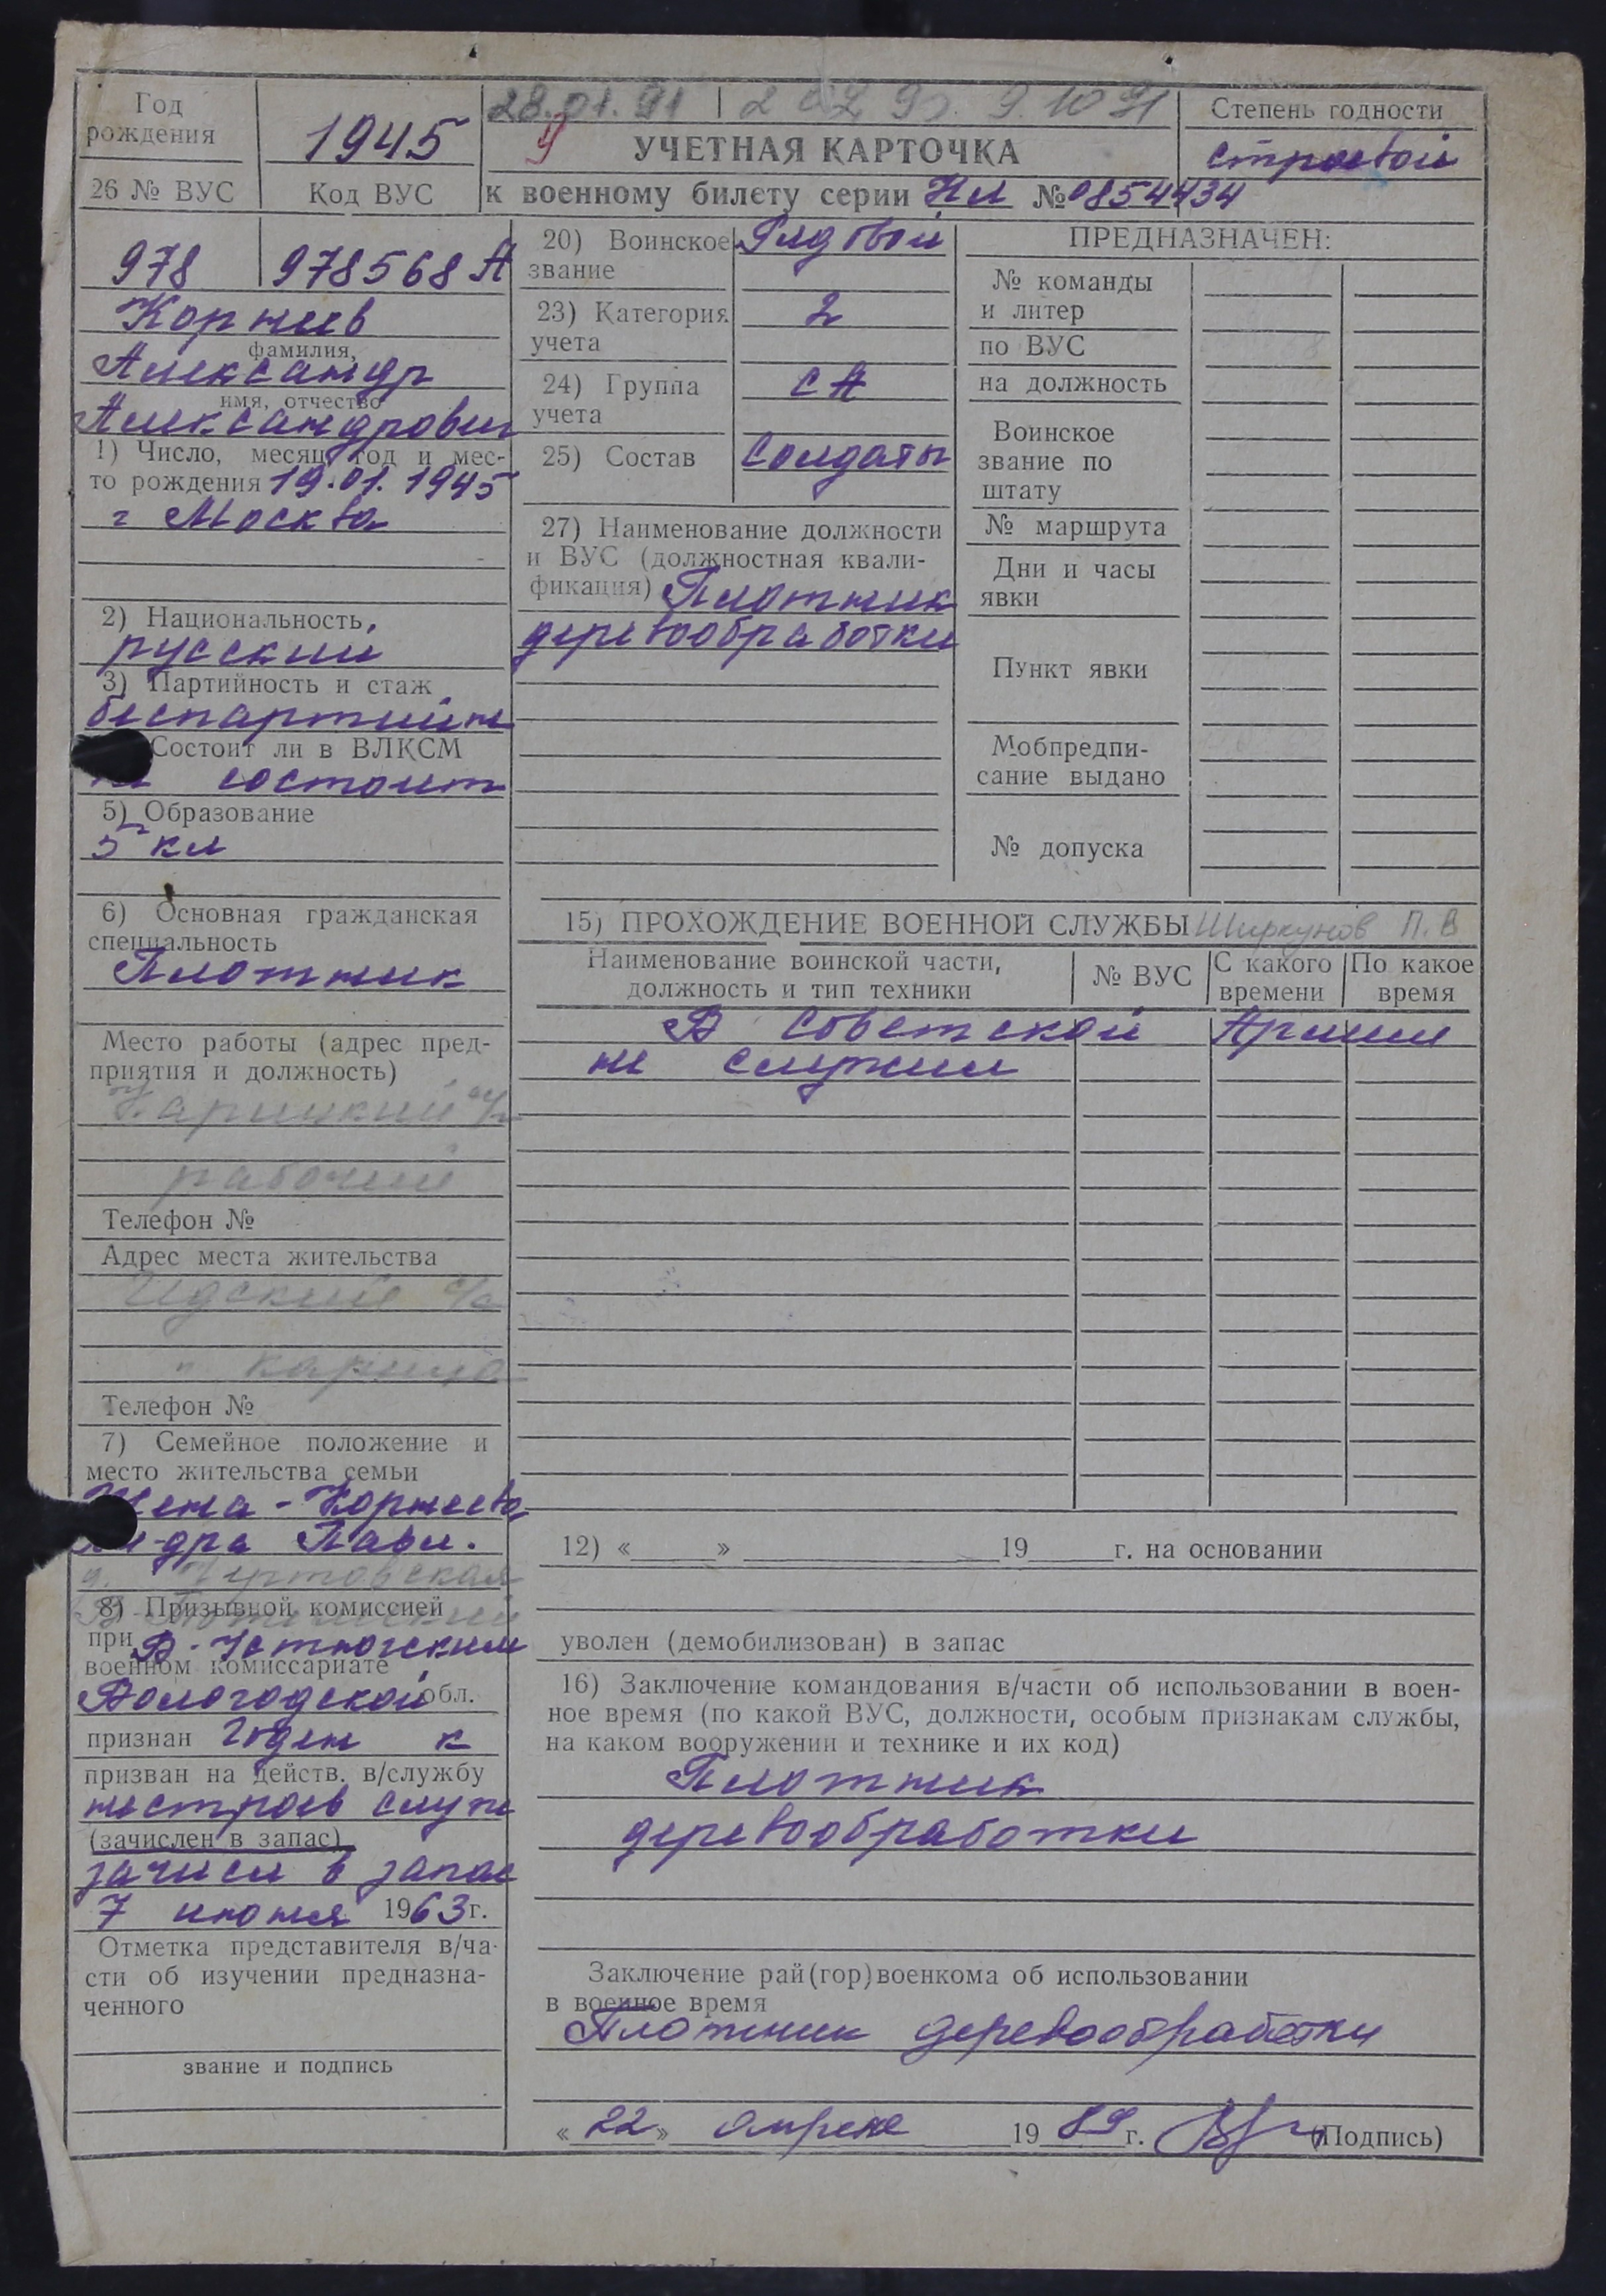 Год рождения
1945
28.01.91
9.10 91
УЧЕТНАЯ КАРТОЧКА
к военному билету серии НЛ № 0854434
Степень годности
строевой
26 № ВУС
Код ВУС
978
978568 А
Корнев
фамилия,
Александр
имя, отчество
Александрович
1) Число, месяц, год и мес-
то рождения 19.01.1945
г Москва
2) Национальность
русский
3) Партийность и стаж
беспартийн
Состоит ли в ВЛКСМ
не состоит
5) Образование
5 кл
6) Основная гражданская
специальность
Плотник
Место работы (адрес пред-
приятия и должность)
рабочий
Телефон №
Адрес места жительства
Идский с/с
Телефон №
7) Семейное положение и
место жительства семьи
Жена - Корнева
Ал-дра Павл.
8) Призывной комиссией
при В-Устюгским
военном комиссариате
Вологодской обл.
признан годен к
призван на действ. в/службу
нестроев служ
(зачислен в запас)
зачисл в запас
7 июня 1963 г.
Отметка представителя в/ча-
сти об изучении предназна-
ченного
звание и подпись
20) Воинское звание
Рядовой
23) Категория учета
2
24) Группа учета
СА
25) Состав
Солдаты
27) Наименование должности
и ВУС (должностная квали-
фикация) Плотник
деревообработки
ПРЕДНАЗНАЧЕН:
№ команды
и литер
по ВУС
на должность
Воинское
звание по
штату
№ маршрута
Дни и часы
явки
Пункт явки
Мобпредпи-
сание выдано
№ допуска
15) ПРОХОЖДЕНИЕ ВОЕННОЙ СЛУЖБЫ Ширкунов П.В
Наименование воинской части,
должность и тип техники
№ ВУС
С какого
времени
По какое
время
В Советской Армии
не служил
12) « » 19 г. на основании
уволен (демобилизован) в запас
16) Заключение командования в/части об использовании в воен-
ное время (по какой ВУС, должности, особым признакам службы,
на каком вооружении и технике и их код)
Плотник
деревообработки
Заключение рай(гор)военкома об использовании
в военное время
Плотник деревообработки
« 22 » апреля 19 89 г. (Подпись)